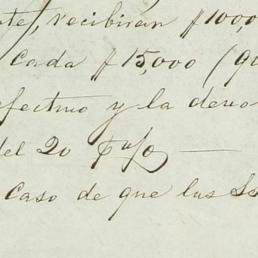 te, recibirán $1000,0
Cada $15,000 (qu
efectivo y la devo
del 20 p%
Caso de que los Se